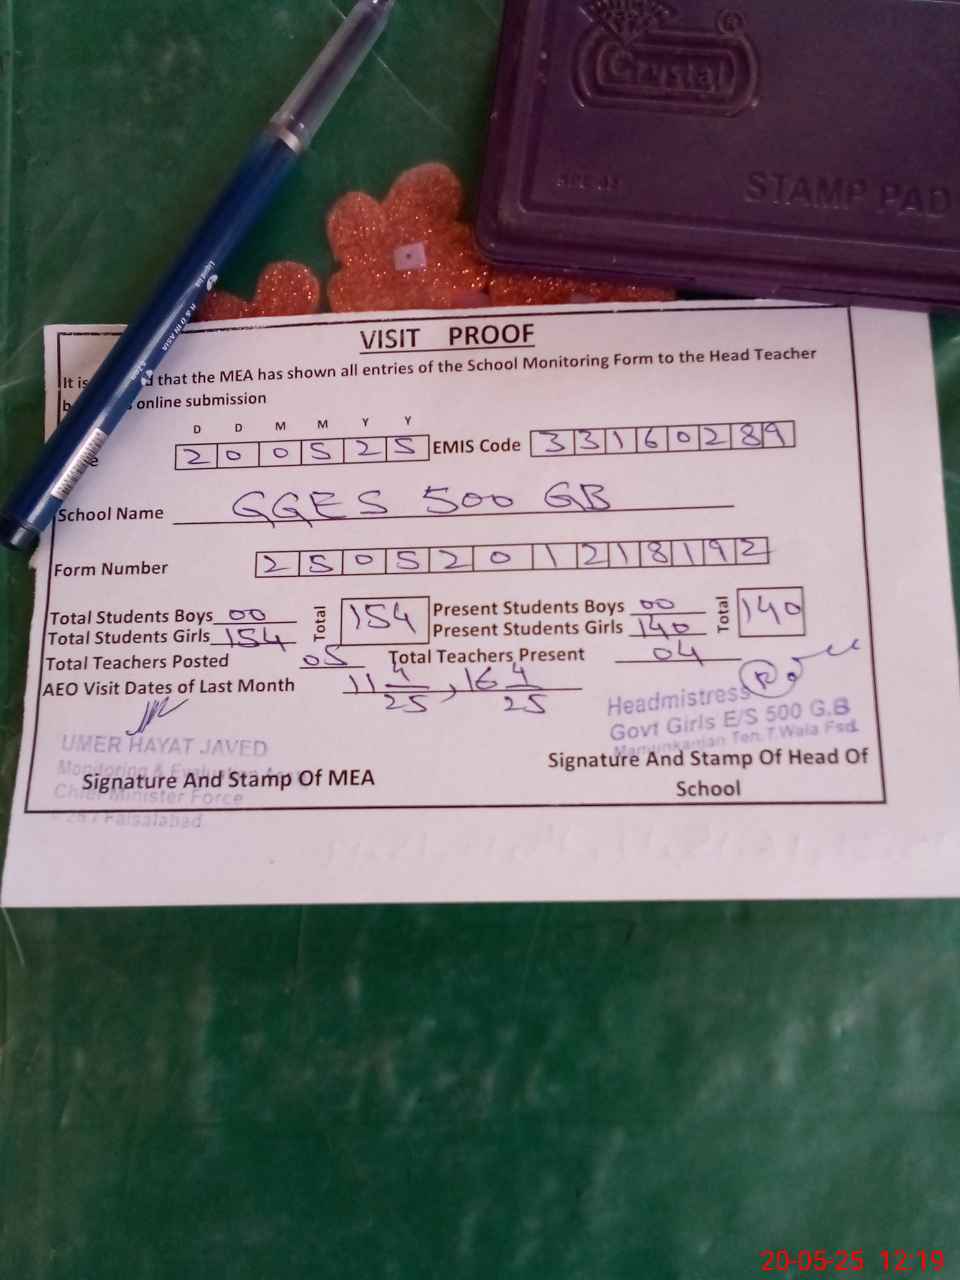 Crystal
®
STAMP PAD
Liquid Ink
VISIT PROOF
It is that the MEA has shown all entries of the School Monitoring Form to the Head Teacher
online submission
D D M M Y Y
2 0 0 5 2 5 EMIS Code 3 3 1 6 0 2 8 9
School Name GGES 500 GB
Form Number 2 5 0 5 2 0 1 2 1 8 1 9 2
Total Students Boys 00 Total 154 Present Students Boys 00 Total 140
Total Students Girls 154 Present Students Girls 140
Total Teachers Posted 05 Total Teachers Present 04
AEO Visit Dates of Last Month 11 4/25, 16 4/25
Headmistress
Govt Girls E/S 500 G.B
Mamunkanjan Teh. T.Wala Fsd.
UMER HAYAT JAVED
Monitoring & Evaluation
Chief Minister Force
Faisalabad
Signature And Stamp Of MEA
Signature And Stamp Of Head Of
School
20-05-25 12:19